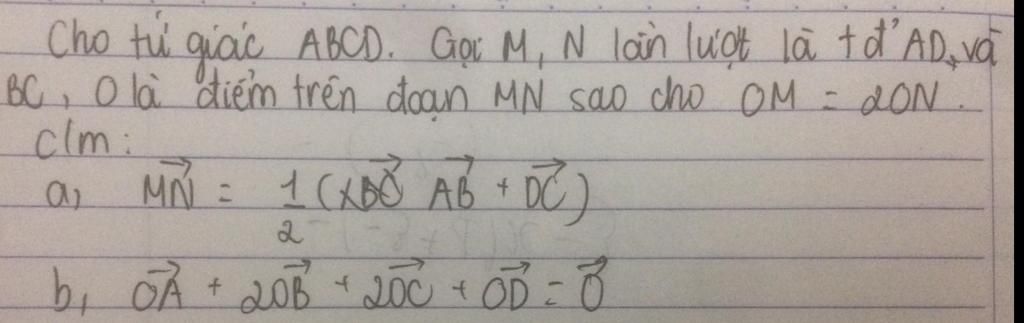 Cho tứ giác ABCD. Gọi M, N lần lượt là tđ' AD, và
BC, O là điểm trên đoạn MN sao cho OM = 2ON.
c/m:
a, $\overrightarrow{MN} = \frac{1}{2} (\overrightarrow{AB} + \overrightarrow{DC})$
b, $\overrightarrow{OA} + 2\overrightarrow{OB} + 2\overrightarrow{OC} + \overrightarrow{OD} = \overrightarrow{0}$